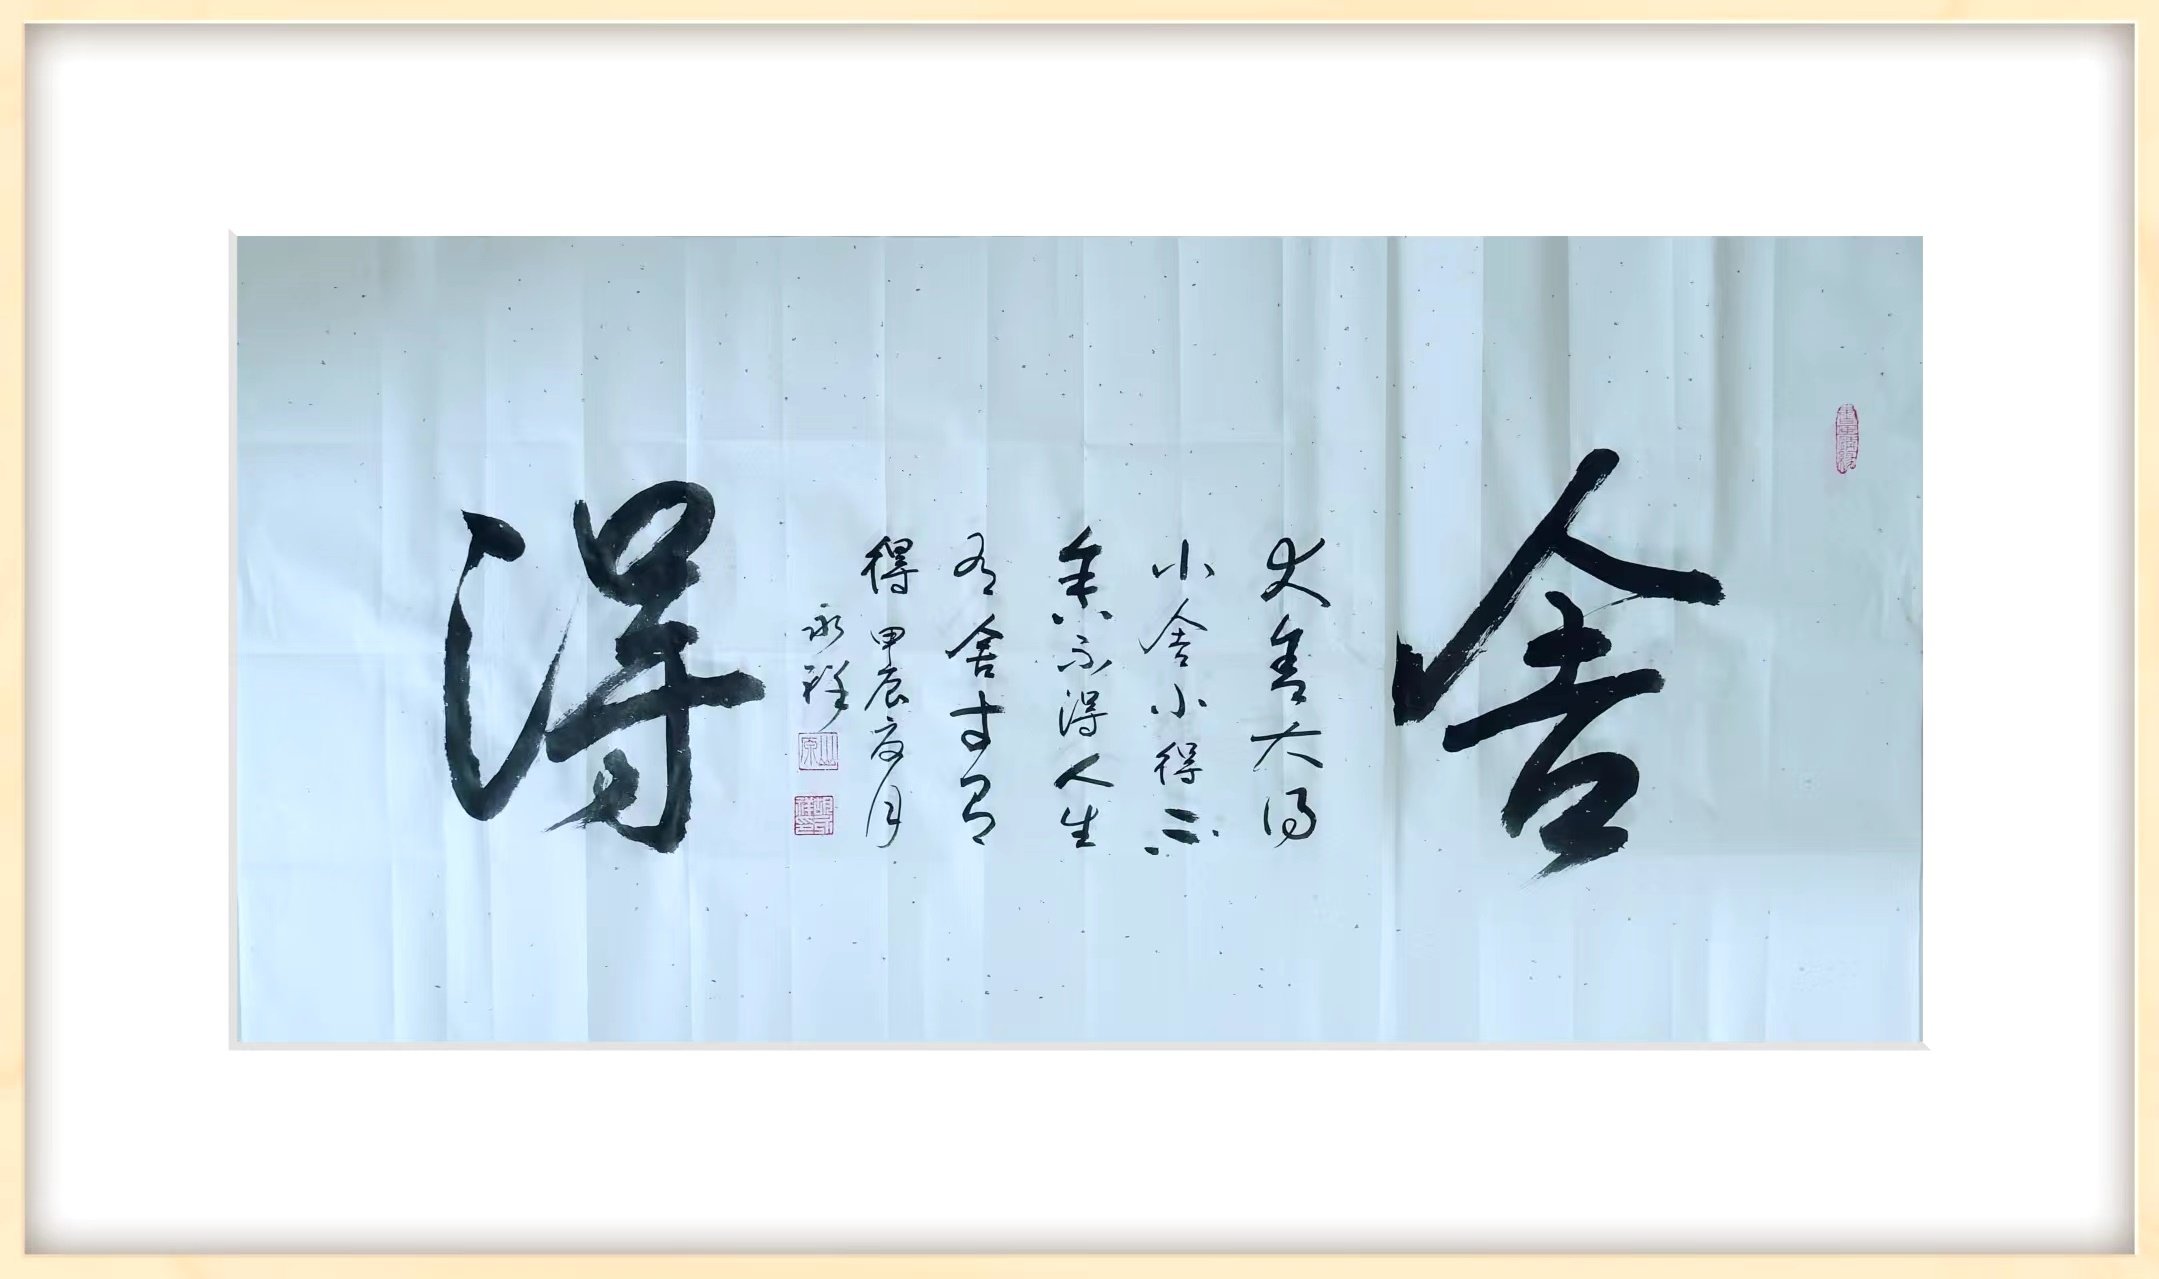 舍
大舍大得
小舍小得不
舍不得人生
有舍才有
得 甲辰夏月
永祥
得